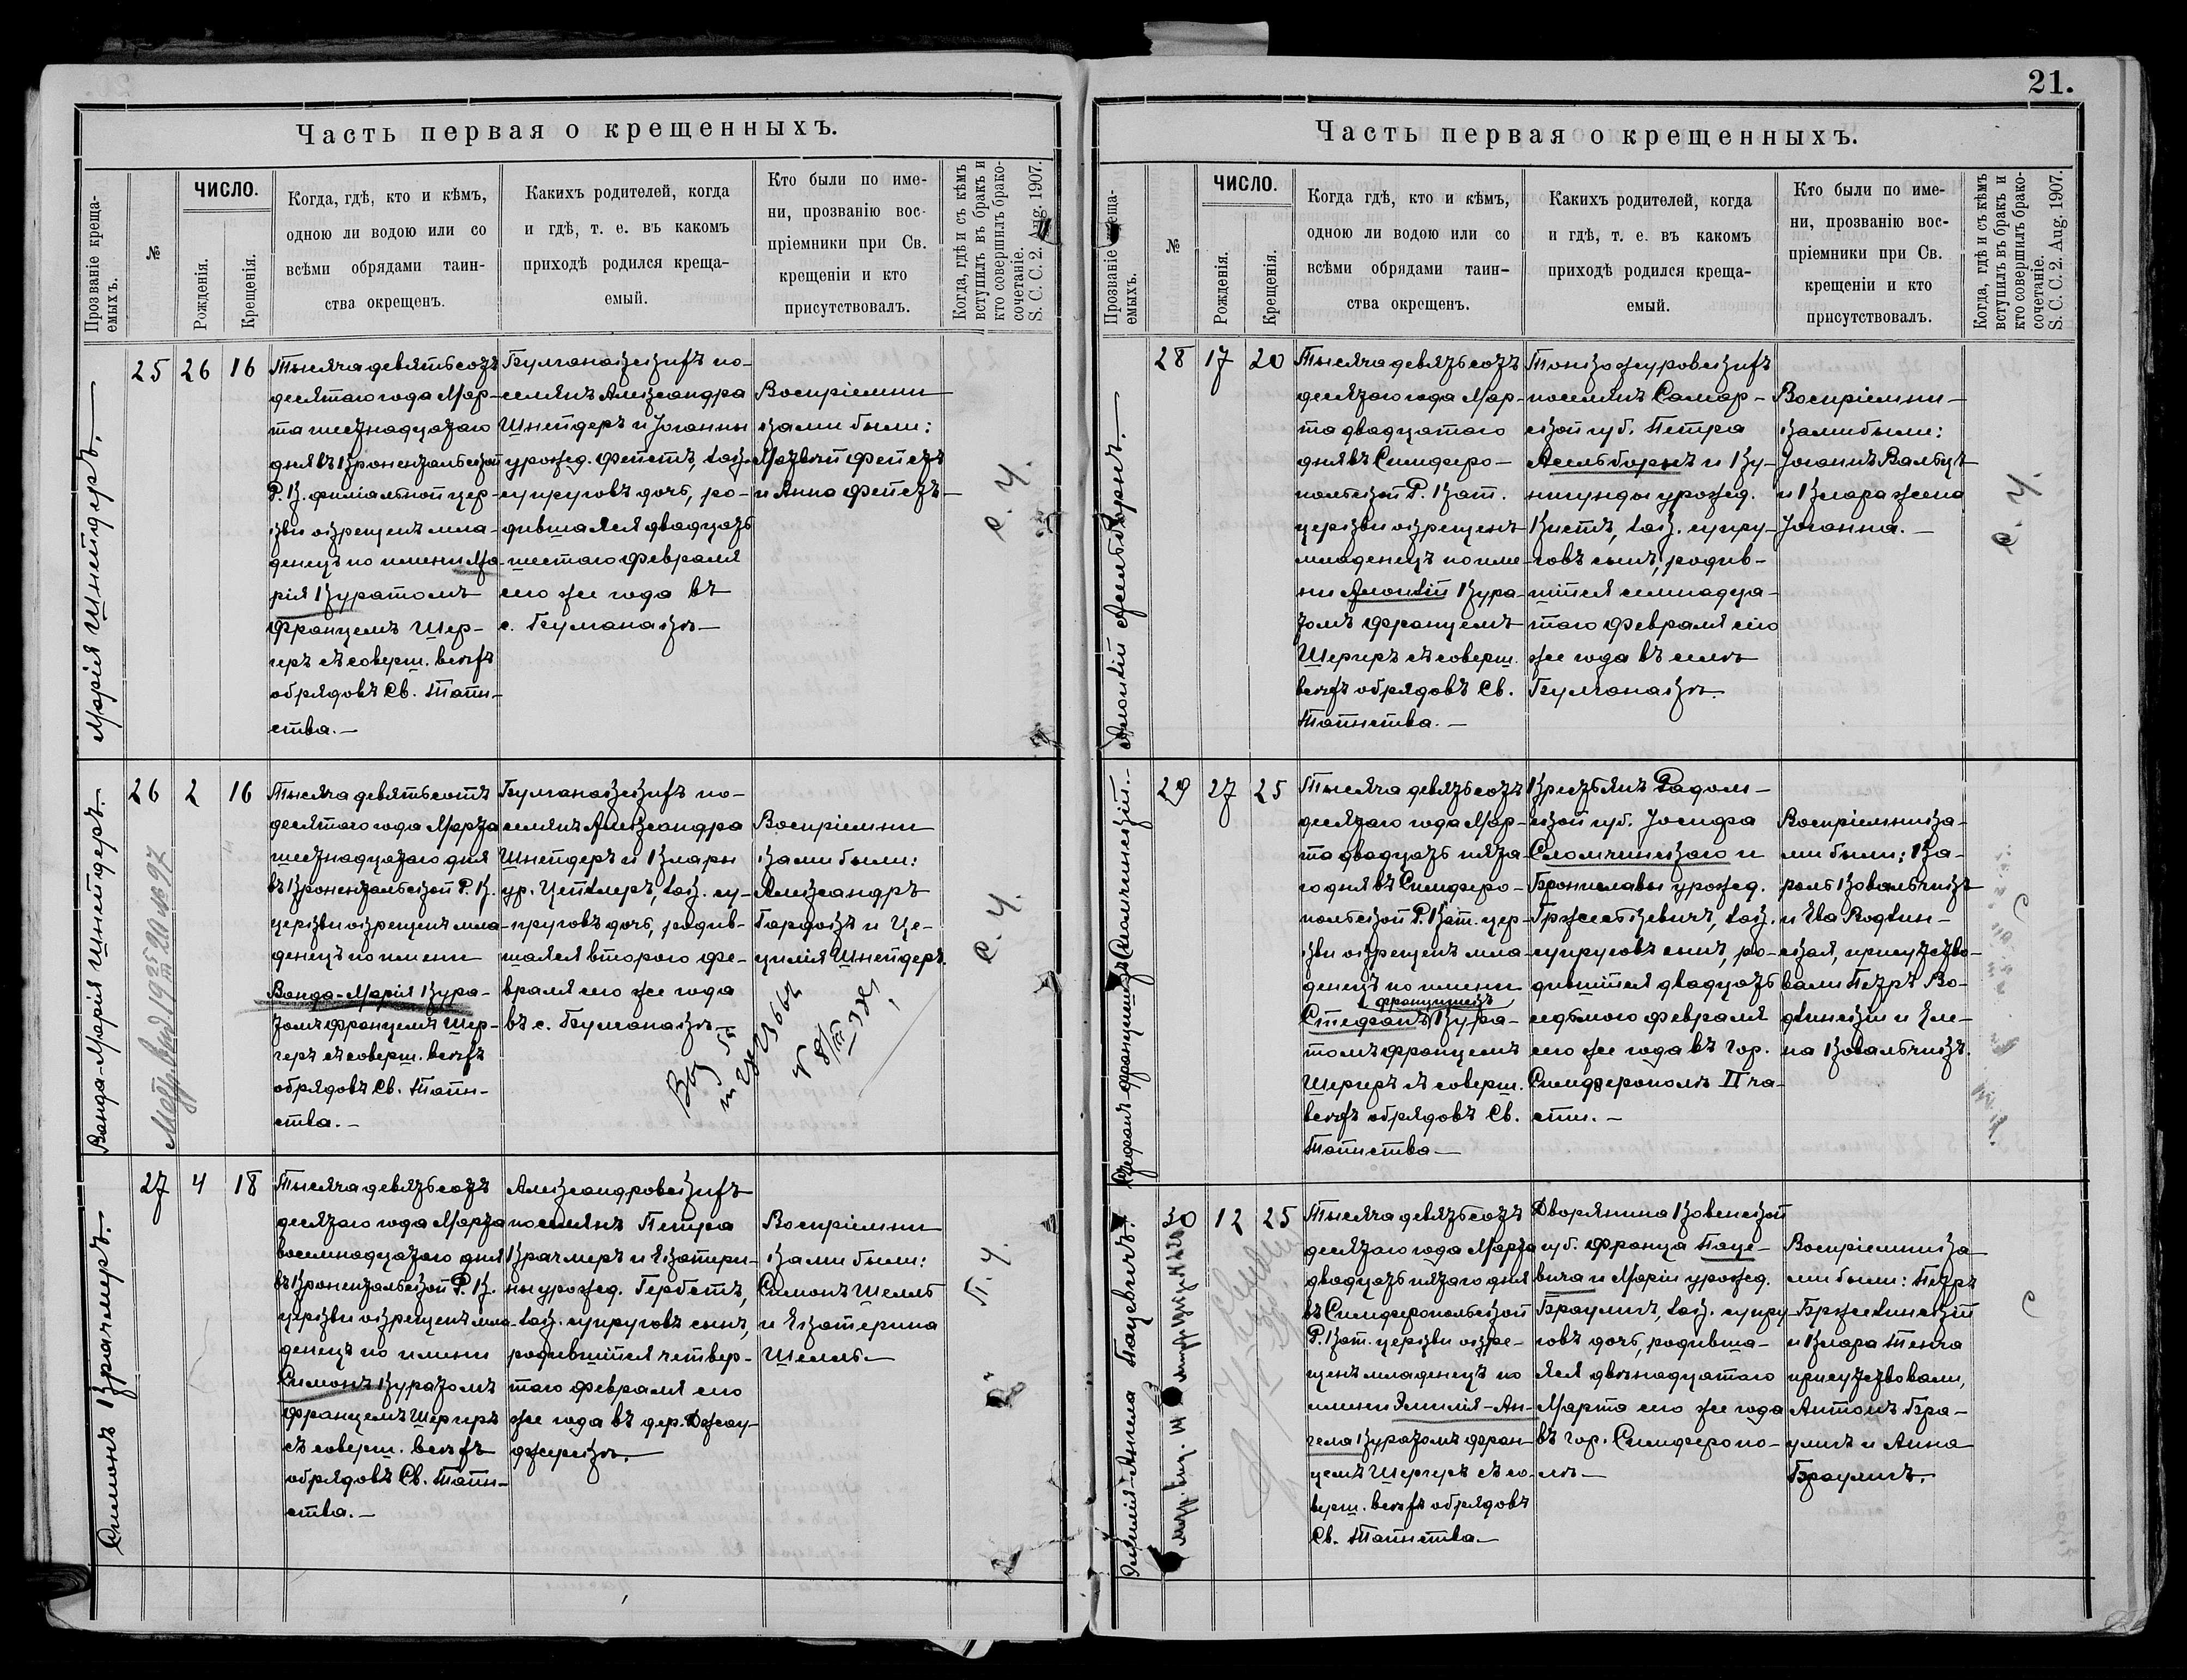 21.
Часть первая о крещенныхъ.
Прозваніе креща-
емыхъ.
№
ЧИСЛО.
Рожденія.
Крещенія.
Когда, гдѣ, кто и кѣмъ,
одною ли водою или со
всѣми обрядами таин-
ства окрещенъ.
Какихъ родителей, когда
и гдѣ, т. е. въ какомъ
приходѣ родился креща-
емый.
Кто были по име-
ни, прозванію вос-
пріемники при Св.
крещеніи и кто
присутствовалъ.
Когда, гдѣ и съ кѣмъ
вступилъ въ бракъ и
кто совершилъ брако-
сочетаніе.
S. C. C. 2. Aug. 1907.
Марія Шнейдеръ.
25 26 16
Тысяча девятьсотъ
десятаго года Мар-
та шестнадцатаго
дня въ Кронентальской
Р. К. филіальной цер-
кви окрещенъ мла-
денецъ по имени Ма-
рія Куратомъ
Францемъ Шер-
геръ съ соверш. всѣхъ
обрядовъ Св. Таин-
ства.
Булганакскихъ по-
селянъ Александра
Шнейдеръ и Іоганны
урожд. Фейстъ, зак.
супруговъ дочь, ро-
дившаяся двадцать
шестаго Февраля
сего же года въ
с. Булганакѣ
Воспріемни
ками были:
Матвѣй Фейстъ
и Анна Фейстъ
с. У.
Ванда-Марія Шнейдеръ.
26 2 16
Тысяча девятьсотъ
десятаго года Марта
шестнадцатаго дня
въ Кронентальской Р. К.
церкви окрещенъ мла-
денецъ по имени
Ванда-Марія Кура-
томъ Францемъ Шер-
геръ съ соверш. всѣхъ
обрядовъ Св. Таин-
ства.
Булганакскихъ по-
селянъ Александра
Шнейдеръ и Клары
ур. Цейтлеръ, зак. су-
пруговъ дочь, родив-
шаяся втораго Фе-
враля сего же года
въ с. Булганакѣ
Воспріемни
ками были:
Александръ
Гардокъ и Це-
цилія Шнейдеръ.
с. У.
Симонъ Крачмеръ.
27 4 18
Тысяча девятьсотъ
десятаго года Марта
восемнадцатаго дня
въ Кронентальской Р. К.
церкви окрещенъ мла-
денецъ по имени
Симонъ Куратомъ
Францемъ Шергеръ
съ соверш. всѣхъ
обрядовъ Св. Таин-
ства.
Александровскихъ
поселянъ Петра
Крачмеръ и Екатери-
ны урожд. Гербстъ,
зак. супруговъ сынъ,
родившійся четвер-
таго Февраля сего
же года въ дер. Джау-
джурекъ.
Воспріемни
ками были:
Симонъ Шеллъ
и Екатерина
Шеллъ.
П. У.
Часть первая о крещенныхъ.
Прозваніе креща-
емыхъ.
№
ЧИСЛО.
Рожденія.
Крещенія.
Когда гдѣ, кто и кѣмъ,
одною ли водою или со
всѣми обрядами таин-
ства окрещенъ.
Какихъ родителей, когда
и гдѣ, т. е. въ какомъ
приходѣ родился креща-
емый.
Кто были по име-
ни, прозванію вос-
пріемники при Св.
крещеніи и кто
присутствовалъ.
Когда, гдѣ и съ кѣмъ
вступилъ въ бракъ и
кто совершилъ брако-
сочетаніе.
S. C. C. 2. Aug. 1907.
Алоизій Асельборнъ.
28 17 20
Тысяча девятьсотъ
десятаго года Мар-
та двадцатаго
дня въ Симферо-
польской Р. Кат.
церкви окрещенъ
младенецъ по име-
ни Алоизій Кура-
томъ Францемъ
Шергеръ съ соверш.
всѣхъ обрядовъ Св.
Таинства.
поселянъ Самар-
ской губ. Петра
Асельборнъ и Ку-
нигунды урожд.
Кистъ, зак. супру-
говъ сынъ, родив-
шійся семнадца-
таго Февраля сего
же года въ селѣ
Булганакѣ.
Воспріемни-
ками были:
Іоганъ Вальцъ
и Клара жена
Іоганна.
с. У.
Стефанъ Францишекъ Сломчинскій.
29 27 25
Тысяча девятьсотъ
десятаго года Мар-
та двадцать пята-
го дня въ Симферо-
польской Р. Кат. цер-
кви окрещенъ мла-
денецъ по имени
Францишекъ
Стефанъ Кура-
томъ Францемъ
Шергеръ съ соверш.
всѣхъ обрядовъ Св.
Таинства
Крестьянъ Радом-
ской губ. Іосифа
Сломчинскаго и
Брониславы урожд.
Гржесткевичъ, зак.
супруговъ сынъ, ро-
дившійся двадцать
седьмого Февраля
сего же года въ гор.
Симферополѣ II ча-
сти.
Воспріемника-
ми были: Ка-
роль Ковальчикъ
и Ева Водзин-
ская, присутство-
вали Петръ Во-
дзинскій и Еле-
на Ковальчикъ.
Эмилія-Ангела Пацевичъ.
30 12 25
Тысяча девятьсотъ
десятаго года Марта
двадцать пятаго дня
въ Симферопольской
Р. Кат. церкви окре-
щенъ младенецъ по
имени Эмилія-Ан-
гела Куратомъ Фран-
цемъ Шергеръ съ со-
верш. всѣхъ обрядовъ
Св. Таинства.
Дворянина Ковенской
губ. Франца Паце-
вича и Маріи урожд.
Браулинъ, зак. супру
говъ дочь, родивша-
яся двѣнадцатаго
Марта сего же года
въ гор. Симферопо-
лѣ
Воспріемника
ми были: Петръ
Бржезинскій
и Клара Тенча
присутствовали,
Антонъ Бра-
улинъ и Анна
Браулинъ.